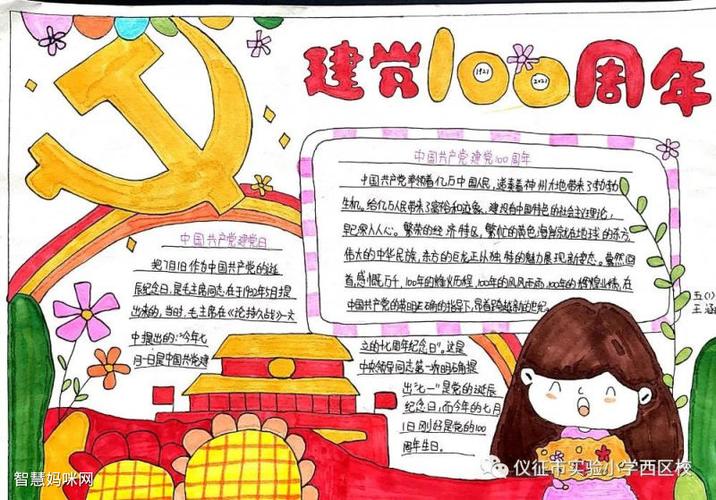 建党100周年
1921
2021
中国共产党建党100周年
中国共产党率领着亿万中国人民,
生机。给亿万人民带来了富裕和
建设有中国特色的社会主义理论,
早已深入人心。繁荣的经济特区,
伟大的中华民族,东方的巨龙正从
独特的魅力展现新姿态。蓦然回
首,感慨万千,100年的峥嵘历程,100年的风风雨雨,100年的辉煌业绩,在
中国共产党的英明正确的指导下,
中国共产党建党日
把7月1日作为中国共产党的诞
辰纪念日,是毛主席同志在于19
年5月提
出来的,当时,毛主席在《论持久战》一文
中提出的:“今年七
月一日是中国共产党建
立的七周年纪念日”。这是
中央领导同志第一次明确提
出“七一”是党的诞辰
纪念日,而今年的七月
1日刚好是党的100
周年生日。
五(1)
王涵
智慧妈咪网
仪征市实验小学西区校